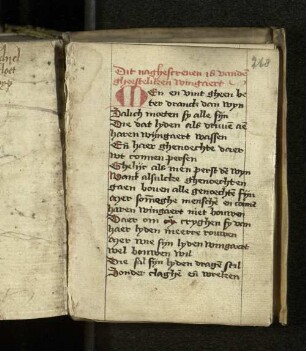 268
Dit naghescreuen is vande
gheesteliken wijngaert
MEn en vint gheen be
ter dranck dan wyn
Salich moeten sy alle sijn
Die dat lyden als druuē aē
haren wijngaert wassen
Eñ haer ghenoechte daer
wt connen persen
Ghelijc als men perst dē wyn
Want alsulcke ghenoechten
gaen bouen alle genoechtē sijn
Mer someghe menschē en connē
haren wijngaert niet bouwen
Daer om crijghen sy van
haer lyden meerre rouwen
Mer wie sijn lyden wijngaert
wel bouwen wil
Die sal sijn lyden dragē stil
Sonder claghē eñ wreken